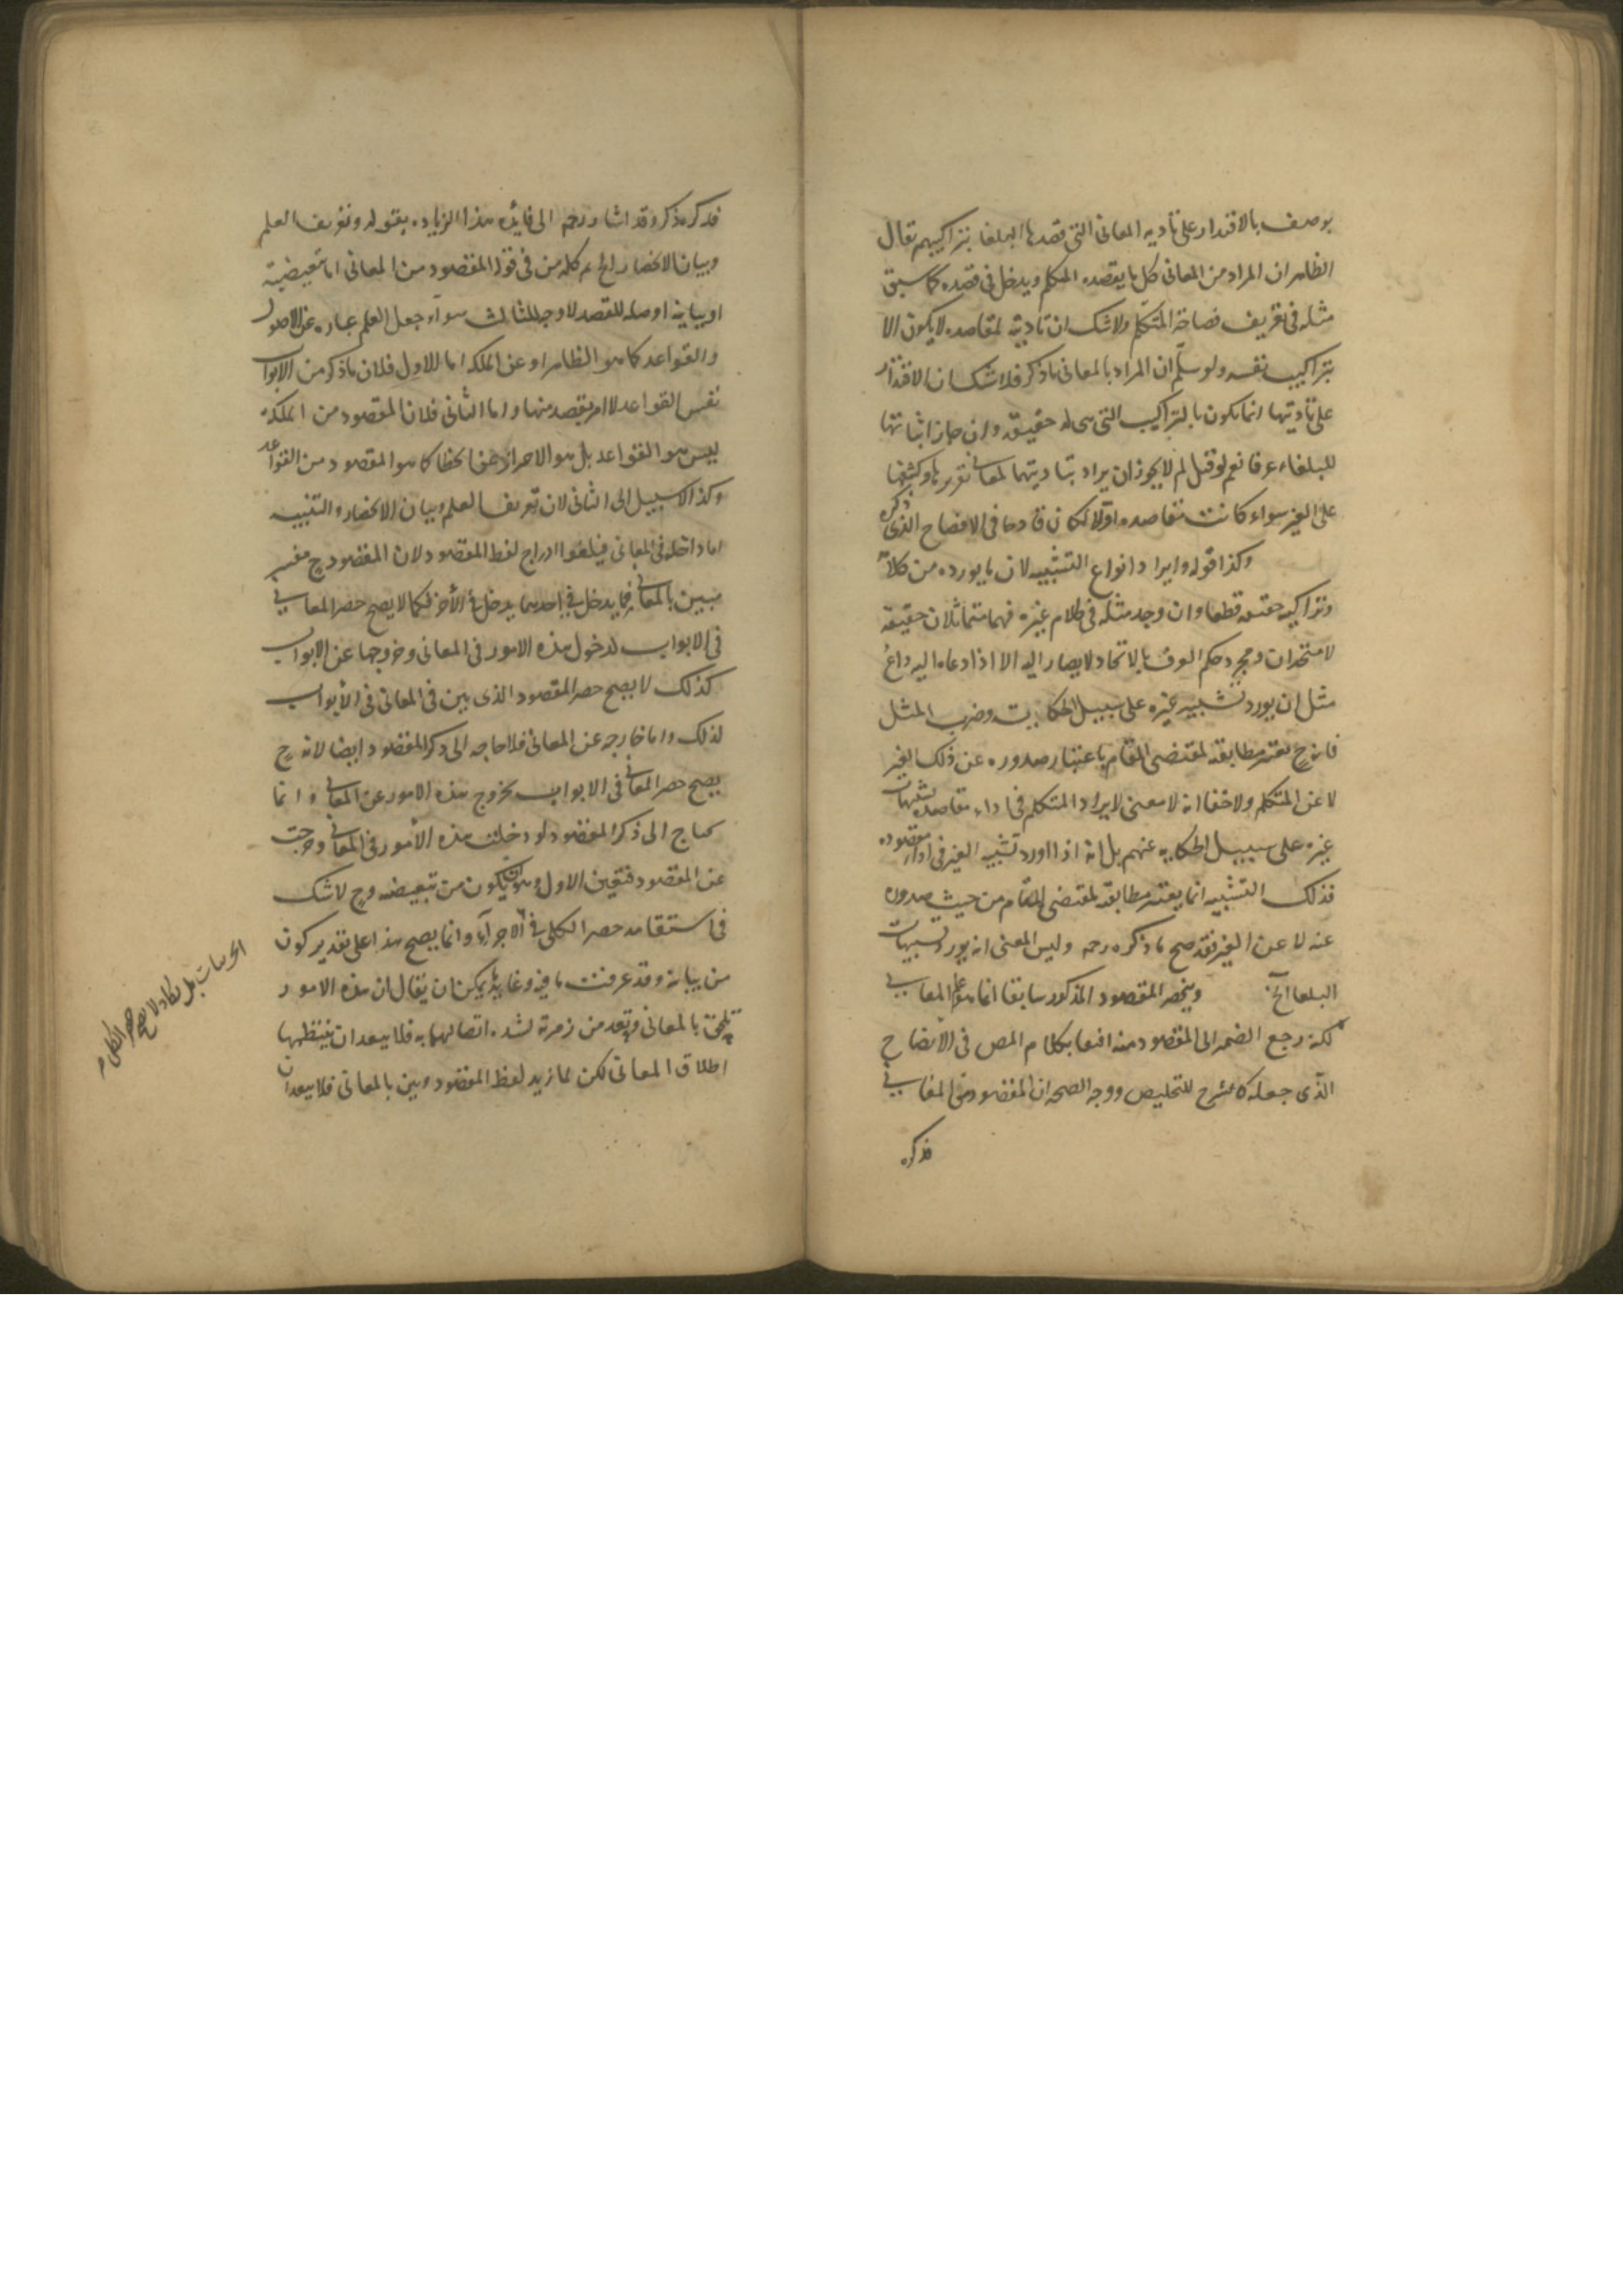 يوصف بالاقتدار على تأديه المعانى التى قصدها البلغا بتراكيبهم تقال
الظاهر ان المراد من المعانى كل ما يقصده المتكلم ويدخل فى قصده كما سبق
مثله فى تعريف فصاحة المتكلم ولا شك ان تأديته لمقاصده لا يكون الا
بتراكيب نفسه ولو سلم ان المراد بالمعانى ما ذكر فلا شك ان الاقتدار
على تأديتها انما يكون بالتراكيب التى هى له حقيقة وان جاز اثباتها
للبلغاء عرفا نعم لو قيل لم لا يجوز ان يراد بتاديتها لمعانى تقريرها وكشفها
على الغير سواء كانت مقاصده اولا لكان قادحا فى الافصاح الذى ذكره
وكذا قوله وايراد انواع التشبيه لان ما يورده من كلامه
وتراكيبه حقيقة قطعا وان وجد مثله فى كلام غيره فهما متماثلان حقيقة
لا متحدان ومجرد حكم العرف بالاتحاد لا يصار اليه الا اذا دعاه اليه داع
مثل ان يورد تشبيه غيره على سبيل الحكاية وضرب المثل
فانه ح يعتبر مطابقته لمقتضى المقام باعتبار صدوره عن ذلك الغير
لا عن المتكلم ولا خفا انه لا معنى لايراد المتكلم فى اداء مقاصده تشبيهات
غيره على سبيل الحكايه عنهم بل انه اذا اورد تشبيه الغير فى اداء مقصوده
فذلك التشبيه انما يعتبر مطابقته لمقتضى المقام من حيث صدوره
عنه لا عن الغير فقد صح ما ذكره رحمه وليس المعنى انه يورد تشبيهات
البلغا الخ وينحصر المقصود المذكور سابقا انما هو علم المعانى
لكنه رجع الضمير الى المقصود منه اتبعا بكلام المص فى الايضاح
الذى جعله كالشرح للتلخيص ووجه الصحه ان المقصود من المعانى
فذكره
فذكره ذكر وقد اشار رحمه الى فائده هذا الزياده بقوله وتعريف العلم
وبيان الانحصار الخ ثم كلمه من فى قوله المقصود من المعانى اما تبعيضية
او بيانيه او صله للقصد لا وجه للثالث سوآء جعل العلم عباره عن الاصول
والقواعد كما هو الظاهر او عن الملكه اما للاول فلان ما ذكر من الابواب
نفس القواعد لا امر يقصد منها واما الثانى فلان المقصود من الملكة
ليس هو القواعد بل هو الاحتراز عن الخطا كما هو المقصود من القواعد
وكذا لا سبيل الى الثانى لان تعريف العلم وبيان الانحصار والتنبيه
اما داخله فى المعانى فيلغوا ادراج لفظ المقصود لان المقصود ح مفسر
مبين بالمعانى فما يدخل فى احدهما يدخل فى الآخر فكما لا يصح حصر المعانى
فى الابواب لدخول هذه الامور فى المعانى وخروجها عن الابواب
كذلك لا يصح حصر المقصود الذى بين فى المعانى فى الأبواب
لذلك واما خارجه عن المعانى فلا حاجه الى ذكر المقصود ايضا لانه ح
يصح حصر المعانى فى الابواب بخروج هذه الامور عن المعانى وانما
يحتاج الى ذكر المقصود لو دخلت هذه الأمور فى المعانى وخرجت
عن المقصود فتعين الاول وهو ان يكون من تبعيضه وح لا شك
فى استقامه حصر الكلى فى الاجزآء وانما يصح هذا على تقدير كون
من بيانه وقد عرفت ما فيه وغايته يمكن ان يقال ان هذه الامور
تلحق بالمعانى وتعد من زمرته لشده اتصالها به فلا يبعد ان ينتظمها
اطلاق المعانى لكن لما زيد لفظ المقصود وبين بالمعانى فلا يبعد ان
الجزئيات بل يكاد لا يصح حصر الكلى